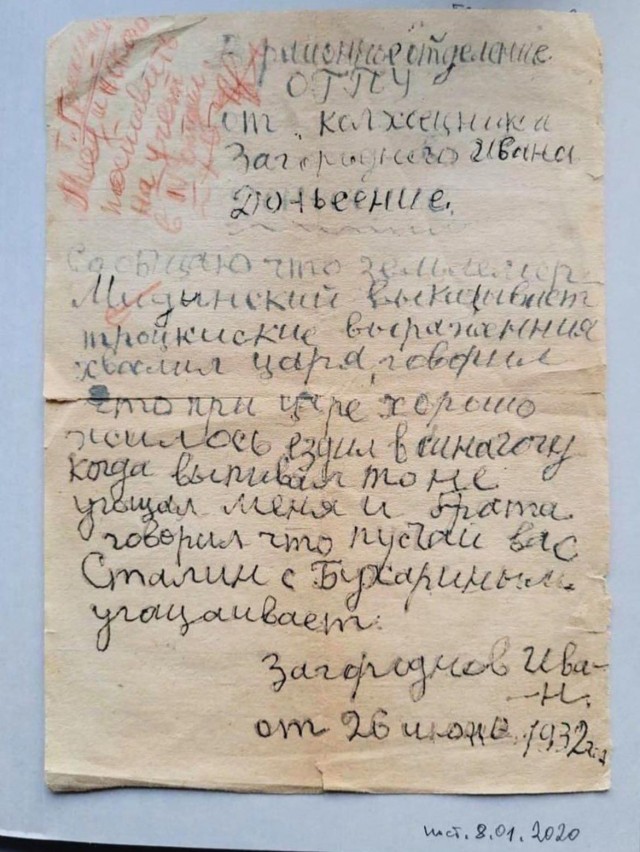 В районное отделение
ОГПУ
от колхозника
Загороднего Ивана
Доньесение.
Сообщаю что землемер
Мидынский выказывает
троцкиские выраженния
хвалил царя, говорил
что при царе хорошо
жилось ездил в синагогу
когда выпивал то не
угощал меня и брата
говорил что пусчай вас
Сталин с Бухариным
угащаивает.
Загороднов Ива-
-н.
от 26 июня 1932г.
на учет
8.01.2020